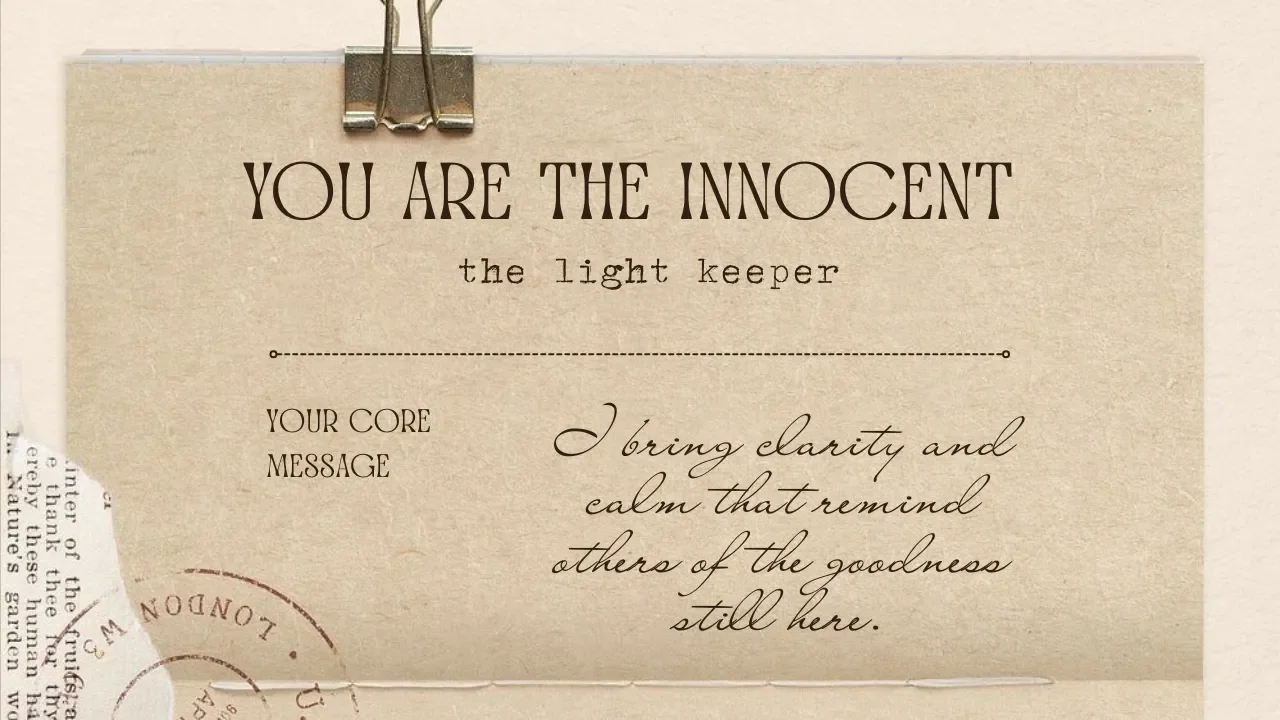 YOU ARE THE INNOCENT
the light keeper
YOUR CORE
MESSAGE
I bring clarity and
calm that remind
others of the goodness
still here.
er
inter of the fruits, a
e thank thee for thy
ereby these human ha
Nature's garden wo
LONDON W3
U.